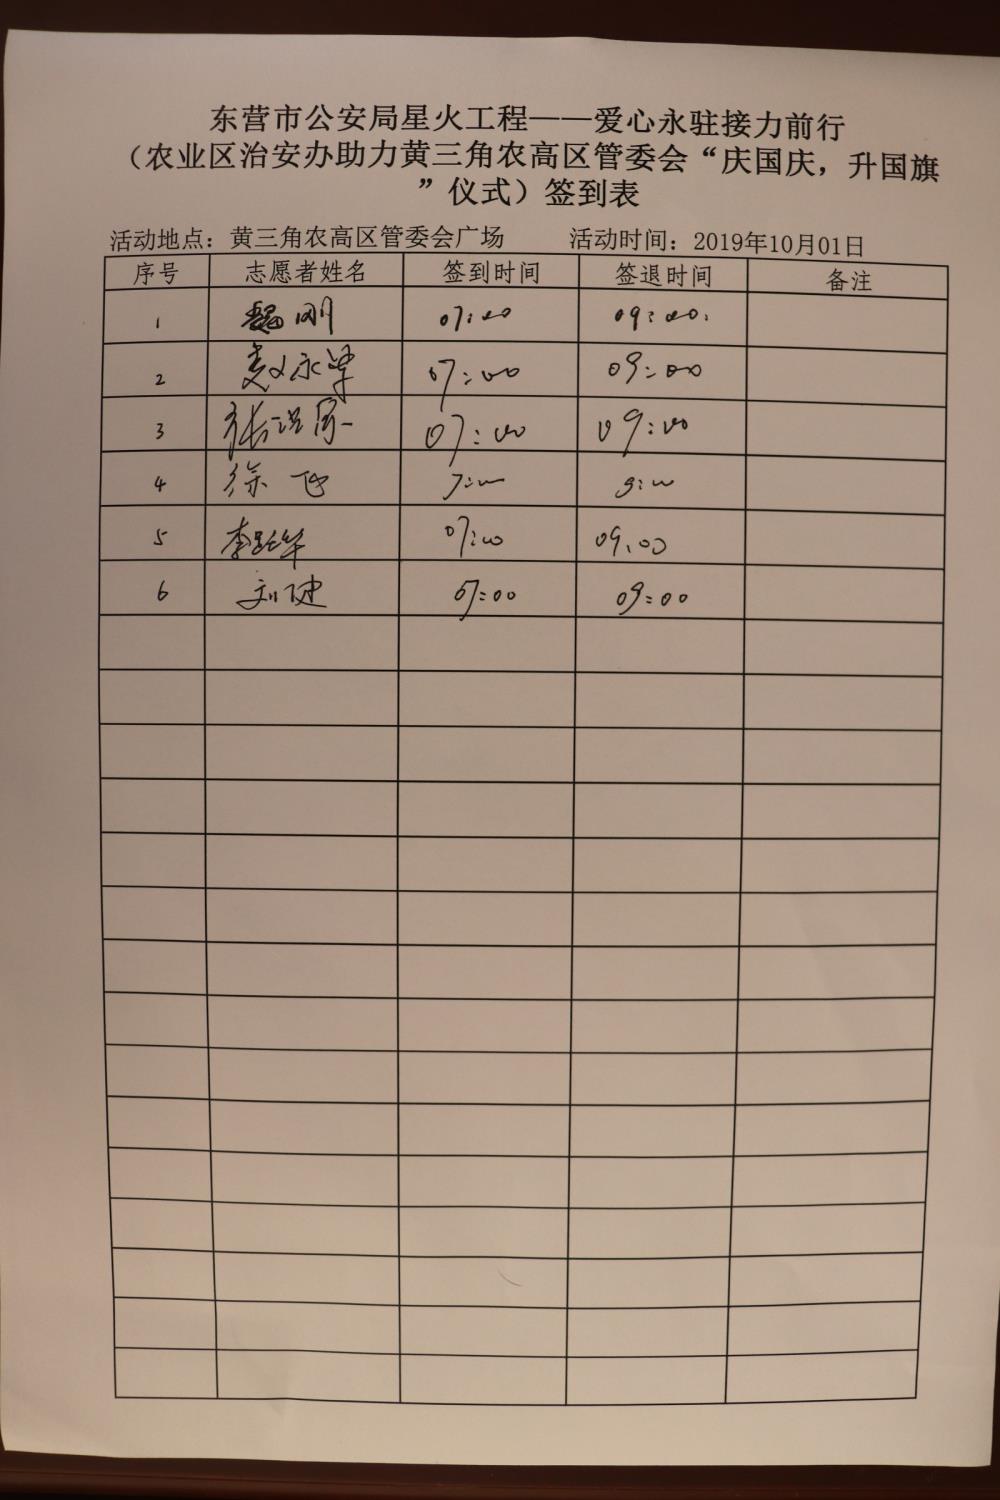 东营市公安局星火工程——爱心永驻接力前行
（农业区治安办助力黄三角农高区管委会“庆国庆，升国旗
”仪式）签到表
活动地点：黄三角农高区管委会广场 活动时间：2019年10月01日
序号 志愿者姓名 签到时间 签退时间 备注
1 魏刚 07:00 09:00.
2 永 07:00 09:00
3 张洪 07:00 09:00
4 徐飞 7:00 9:00
5 李华 07:00 09:00
6 刘健 07:00 09:00